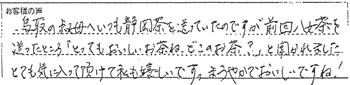 お客様の声
鳥取の叔母へいつも静岡茶を送っていたのですが前回八女茶を
送ったところ「とってもおいしいお茶ね、どこのお茶？」と聞かれました
とても気に入って頂けて私も嬉しいです。まろやかでおいしいですね！